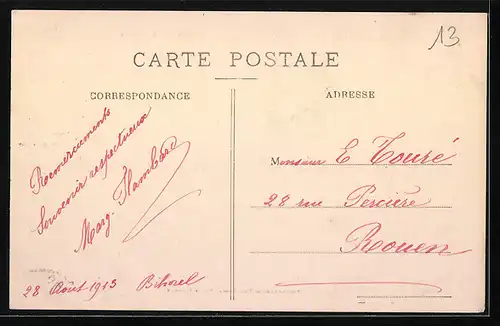 13
CARTE POSTALE
CORRESPONDANCE
ADRESSE
Remerciements
Souvenir respectueux
Marg. Flambard
28 Août 1913 Bihorel
Monsieur E Touré
28 rue Percière
Rouen